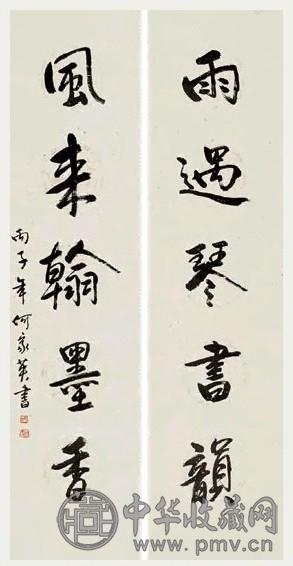 雨過琴書韻
風来翰墨香
丙子年何家英書
中华收藏网
www.pmv.cn